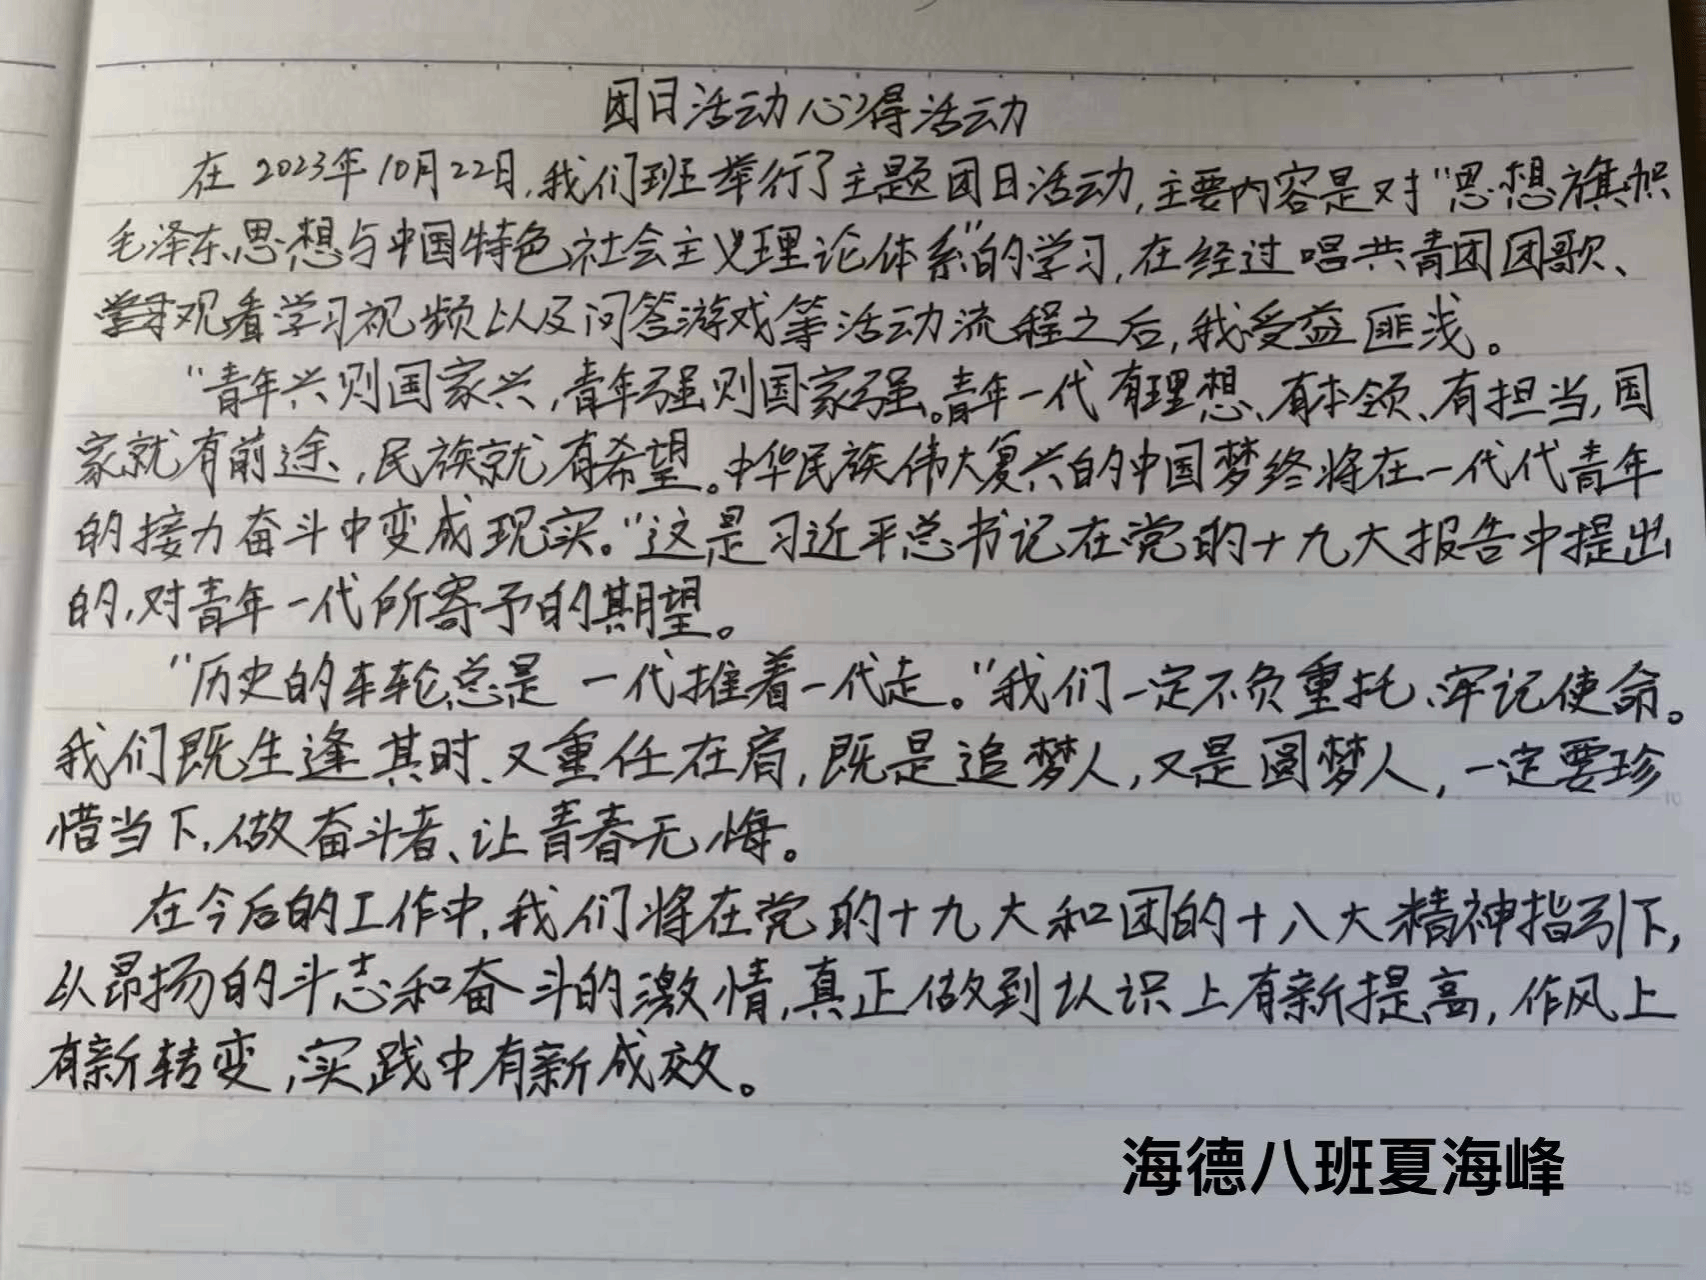 团日活动心得活动
在2023年10月22日,我们班举行了主题团日活动,主要内容是对“思想旗帜
毛泽东思想与中国特色社会主义理论体系”的学习,在经过唱共青团团歌、
观看学习视频以及问答游戏等活动流程之后,我受益匪浅。
“青年兴则国家兴,青年强则国家强。青年一代有理想、有本领、有担当,国
家就有前途、,民族就有希望。中华民族伟大复兴的中国梦终将在一代代青年
的接力奋斗中变成现实。”这是习近平总书记在党的十九大报告中提出
的,对青年一代所寄予的期望。
“历史的车轮总是一代推着一代走。”我们一定不负重托、牢记使命。
我们既生逢其时、又重任在肩,既是追梦人,又是圆梦人,一定要珍
惜当下,做奋斗者、让青春无悔。
在今后的工作中,我们将在党的十九大和团的十八大精神指引下,
以昂扬的斗志和奋斗的激情,真正做到认识上有新提高,作风上
有新转变,实践中有新成效。
海德八班夏海峰